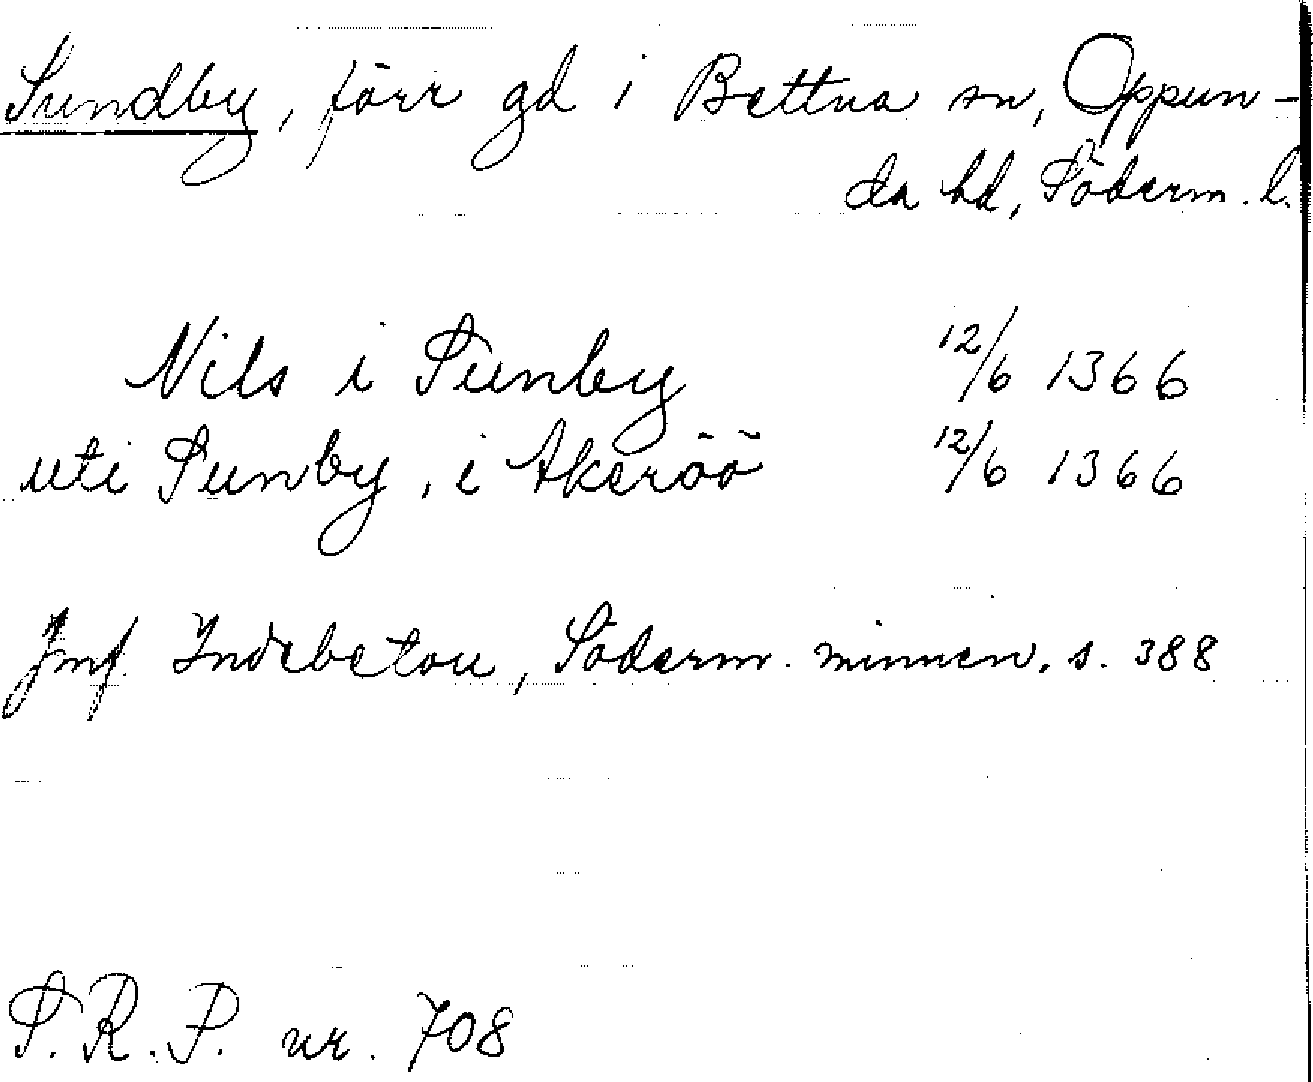 Sundby, förr gd i Bettna sn, Oppun-
da hd, Söderm. l.
Nils i Sunby 12/6 1366
uti Sunby, i Akeröö 12/6 1366
Jmf. Indebetou, Söderm. minnen, s. 388
S.R.P. nr. 708